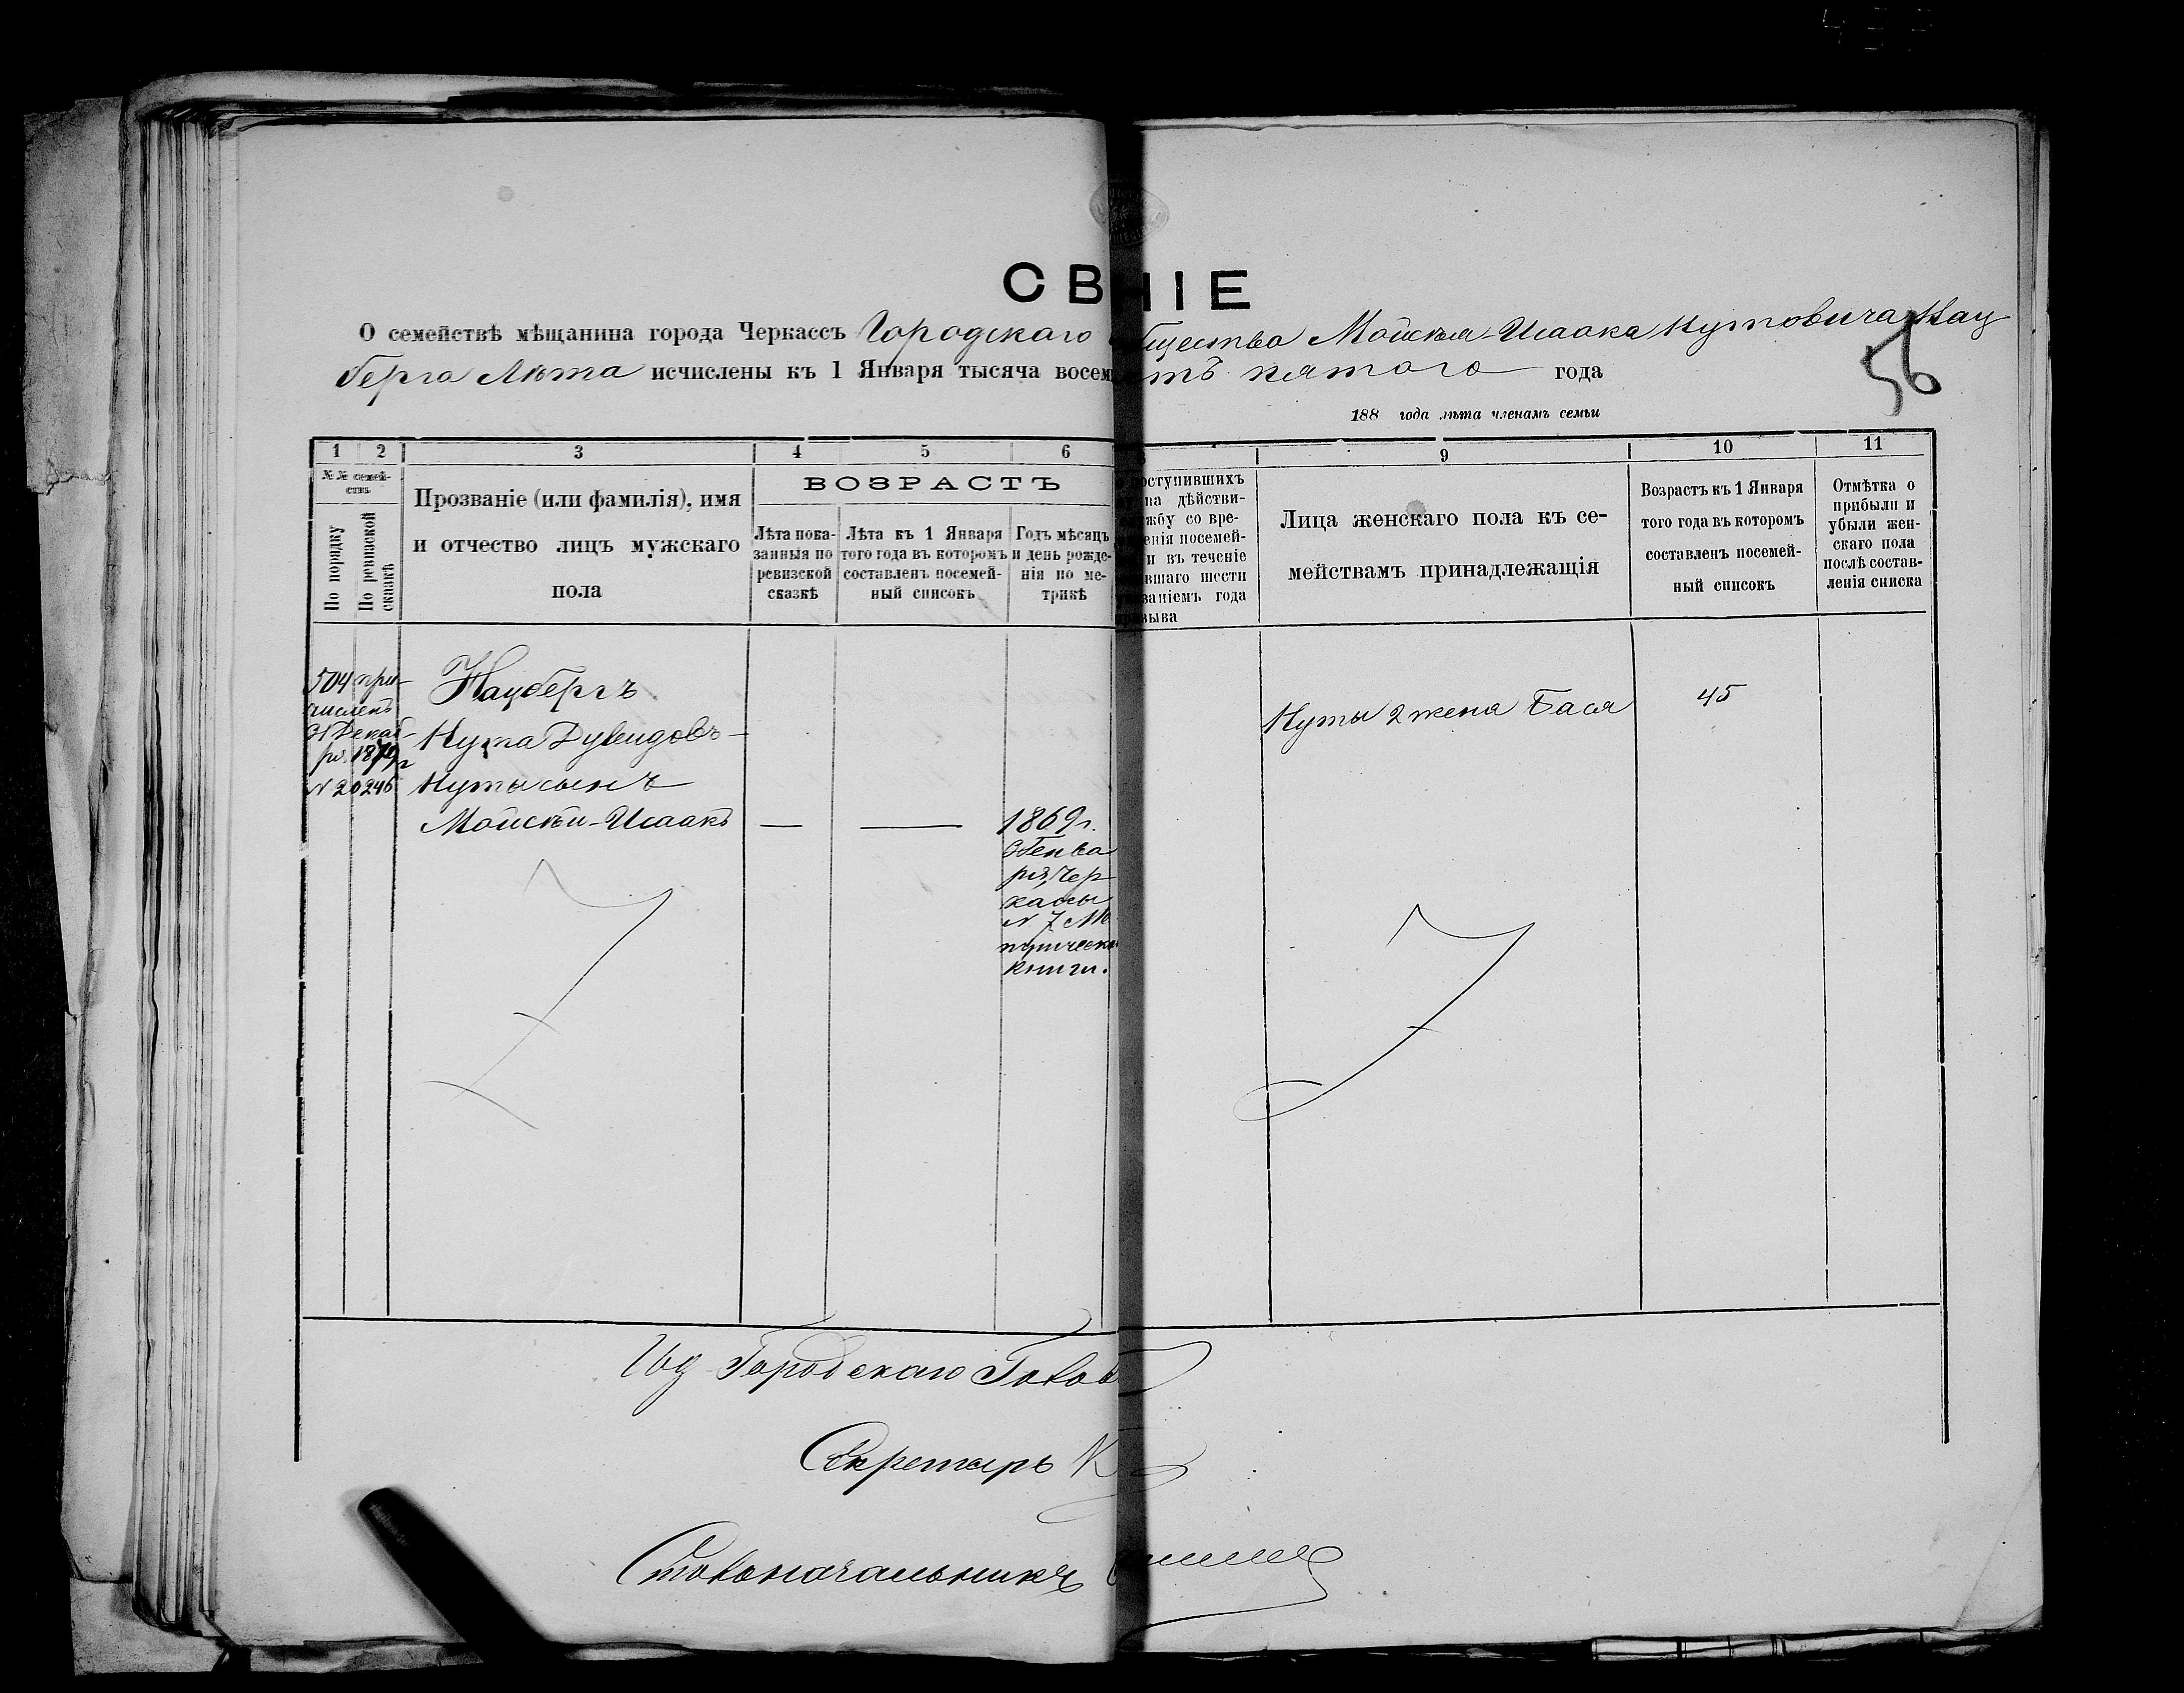 СВ НІЕ
О семействѣ мѣщанина города Черкассъ Городскаго бщества Мойсѣя-Исаака Нутовича Кац
берга Лѣта исчислены къ 1 Января тысяча восем тъ пятаго года
56
188 года лѣта членамъ семьи
1 2 3 4 5 6 9 10 11
№№ семей-
ствъ
По порядку
По ревизской
сказкѣ
Прозваніе (или фамилія), имя
и отчество лицъ мужскаго
пола
ВОЗРАСТЪ
Лѣта пока-
занныя по
ревизской
сказкѣ
Лѣта къ 1 Января
того года въ которомъ
составленъ посемей-
ный списокъ
Годъ мѣсяцъ
и день рожде-
нія по ме-
трикѣ
оступившихъ
на дѣйстви-
жбу со вре-
енія посемей-
и въ теченіе
вшаго шести
заніемъ года
зыва
Лица женскаго пола къ се-
мействамъ принадлежащія
Возрастъ къ 1 Января
того года въ которомъ
составленъ посемей-
ный списокъ
Отмѣтка о
прибыли и
убыли жен-
скаго пола
послѣ состав-
ленія списка
504 при-
численъ
31 Декаб-
ря 1874 г
№ 20246
Кацбергъ
Нута Дувидовъ
Нуты сынъ
Мойсѣй-Исаакъ
1869 г.
3 Генва
ря, Чер
кассы
№ 7 Ме
трическ
книги.
Нуты 2 жена Бася
45
Городскаго Голов
Секретарь К
Столоначальникъ